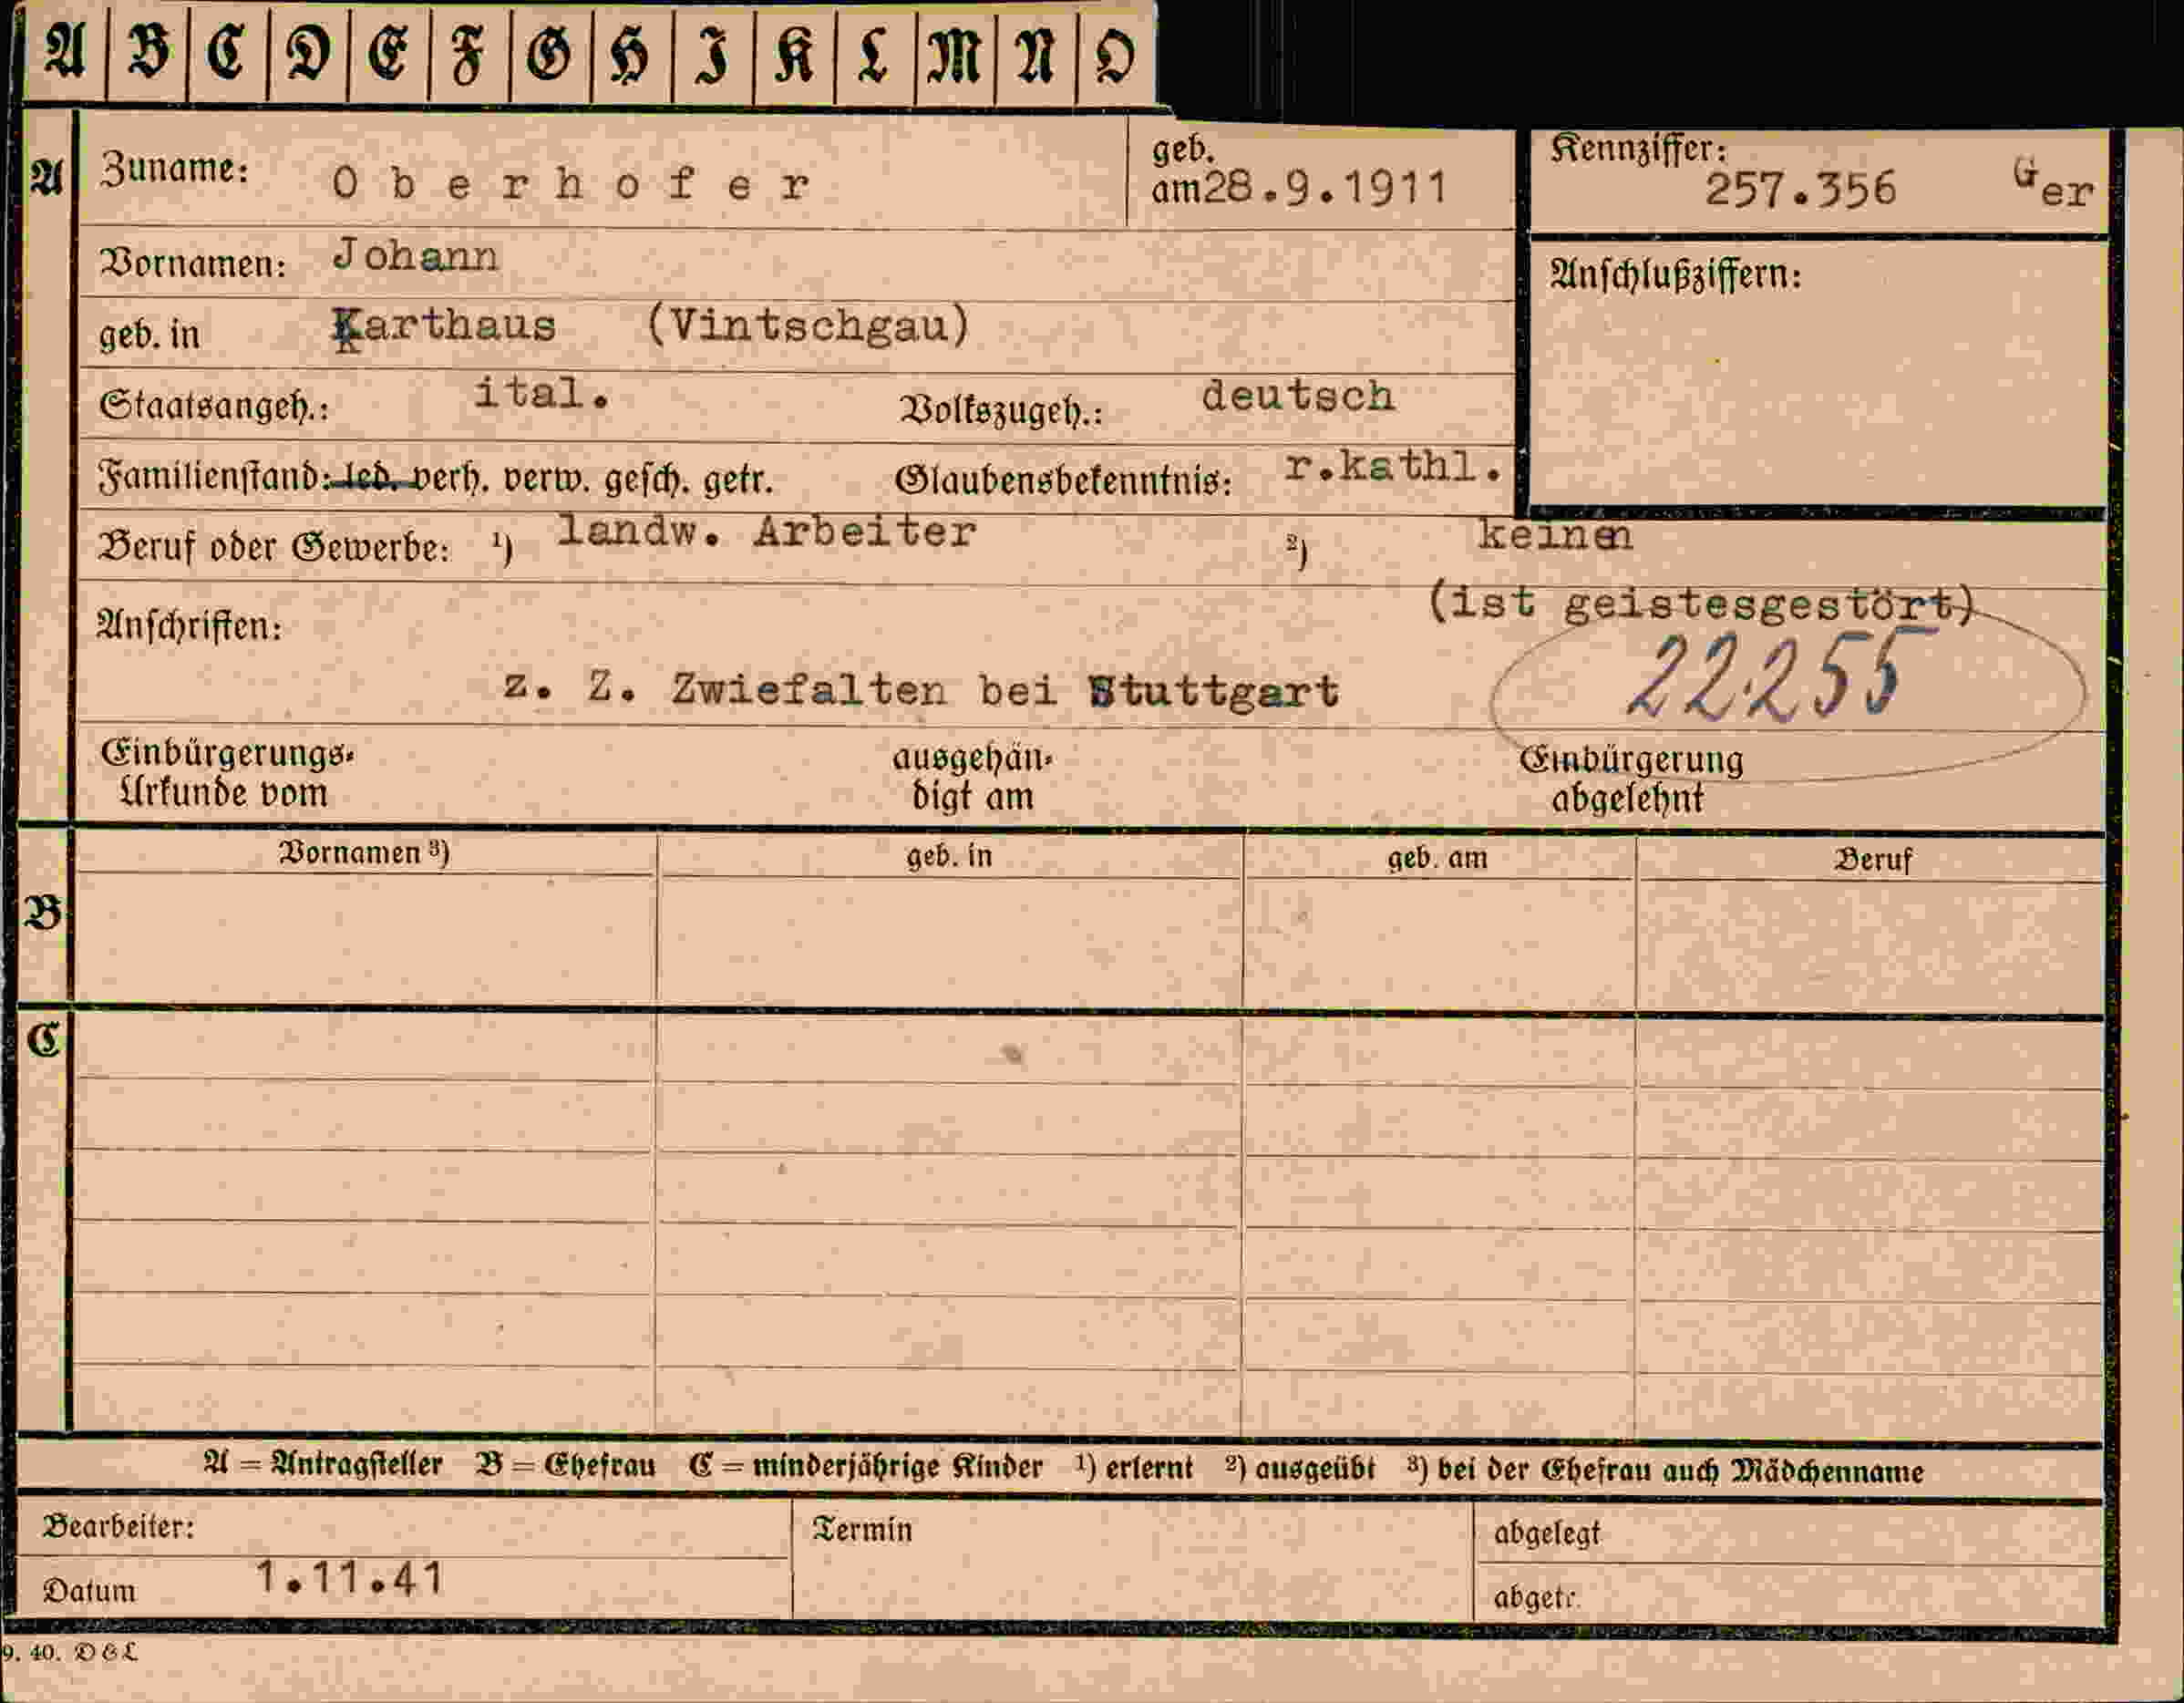 A B C D E F G H I K L M N O
A Zuname: Oberhofer geb. am 28.9.1911 Kennziffer: 257.356 Ger
Vornamen: Johann
Anschlußziffern:
geb. in Karthaus (Vintschgau)
Staatsangeh.: ital. Volkszugeh.: deutsch
Familienstand: led. verh. verw. gesch. getr. Glaubensbekenntnis: r.kathl.
Beruf oder Gewerbe: ¹) landw. Arbeiter ²) keinen
(ist geistesgestört)
Anschriften:
22255
z. Z. Zwiefalten bei Stuttgart
Einbürgerungs-
Urkunde vom
ausgehän-
digt am
Einbürgerung
abgelehnt
Vornamen ³) geb. in geb. am Beruf
B
C
A = Antragsteller B = Ehefrau C = minderjährige Kinder ¹) erlernt ²) ausgeübt ³) bei der Ehefrau auch Mädchenname
Bearbeiter: Termin abgelegt
Datum 1.11.41 abgetr.
9. 40. D & L